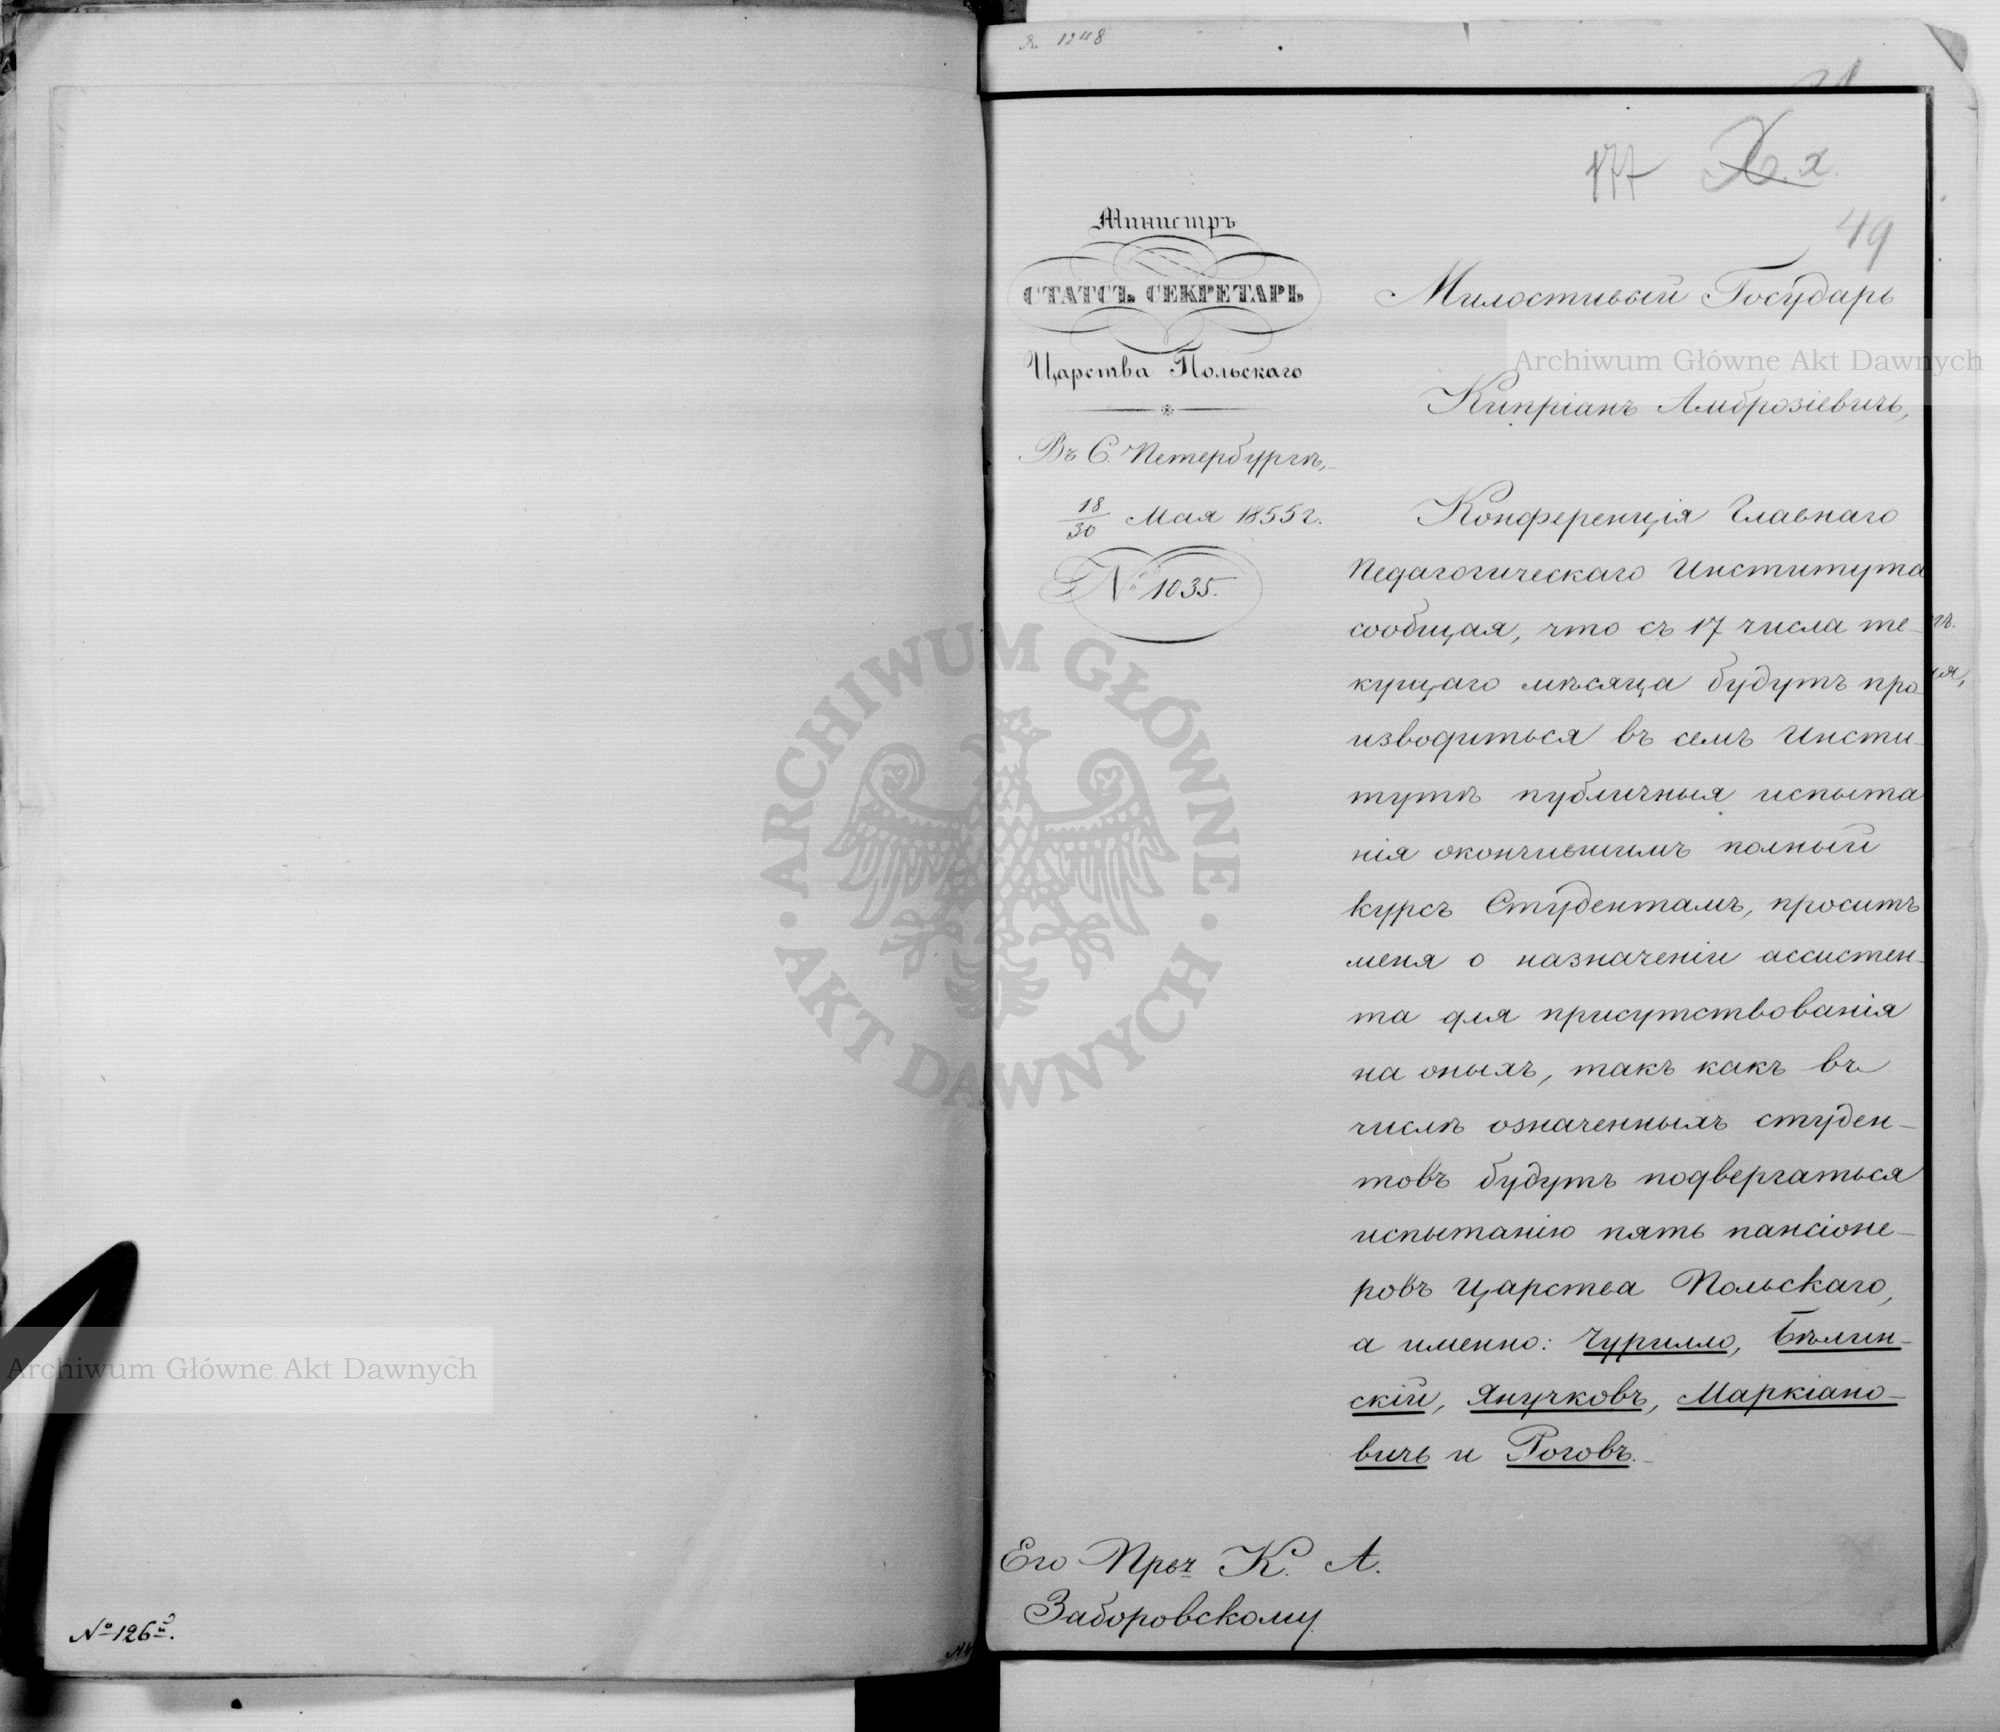 № 126й.
д. 1248
177
X. x.
49
Министръ
СТАТСЪ СЕКРЕТАРЬ
Царства Польскаго
Въ С. Петербургѣ,
18/30 Мая 1855 г.
№ 1035.
Милостивый Государь
Кипріанъ Амброзіевичь,
Конференція Главнаго
Педагогическаго Института
сообщая, что съ 17 числа те-
кущаго мѣсяца будутъ про
изводиться въ семъ Инсти-
тутѣ публичныя испыта
нія окончившимъ полный
курсъ Студентамъ, проситъ
меня о назначеніи ассистен-
та для присутствованія
на оныхъ, такъ какъ въ
числѣ означенныхъ студен-
товъ будутъ подвергаться
испытанію пять пансіоне-
ровъ Царства Польскаго,
а именно: Чурилло, Бѣлин-
скій, Янучковъ, Маркіано-
вичь и Роговъ.
Его Прву К. А.
Заборовскому
Archiwum Główne Akt Dawnych
Archiwum Główne Akt Dawnych
ARCHIWUM GŁÓWNE · AKT DAWNYCH ·